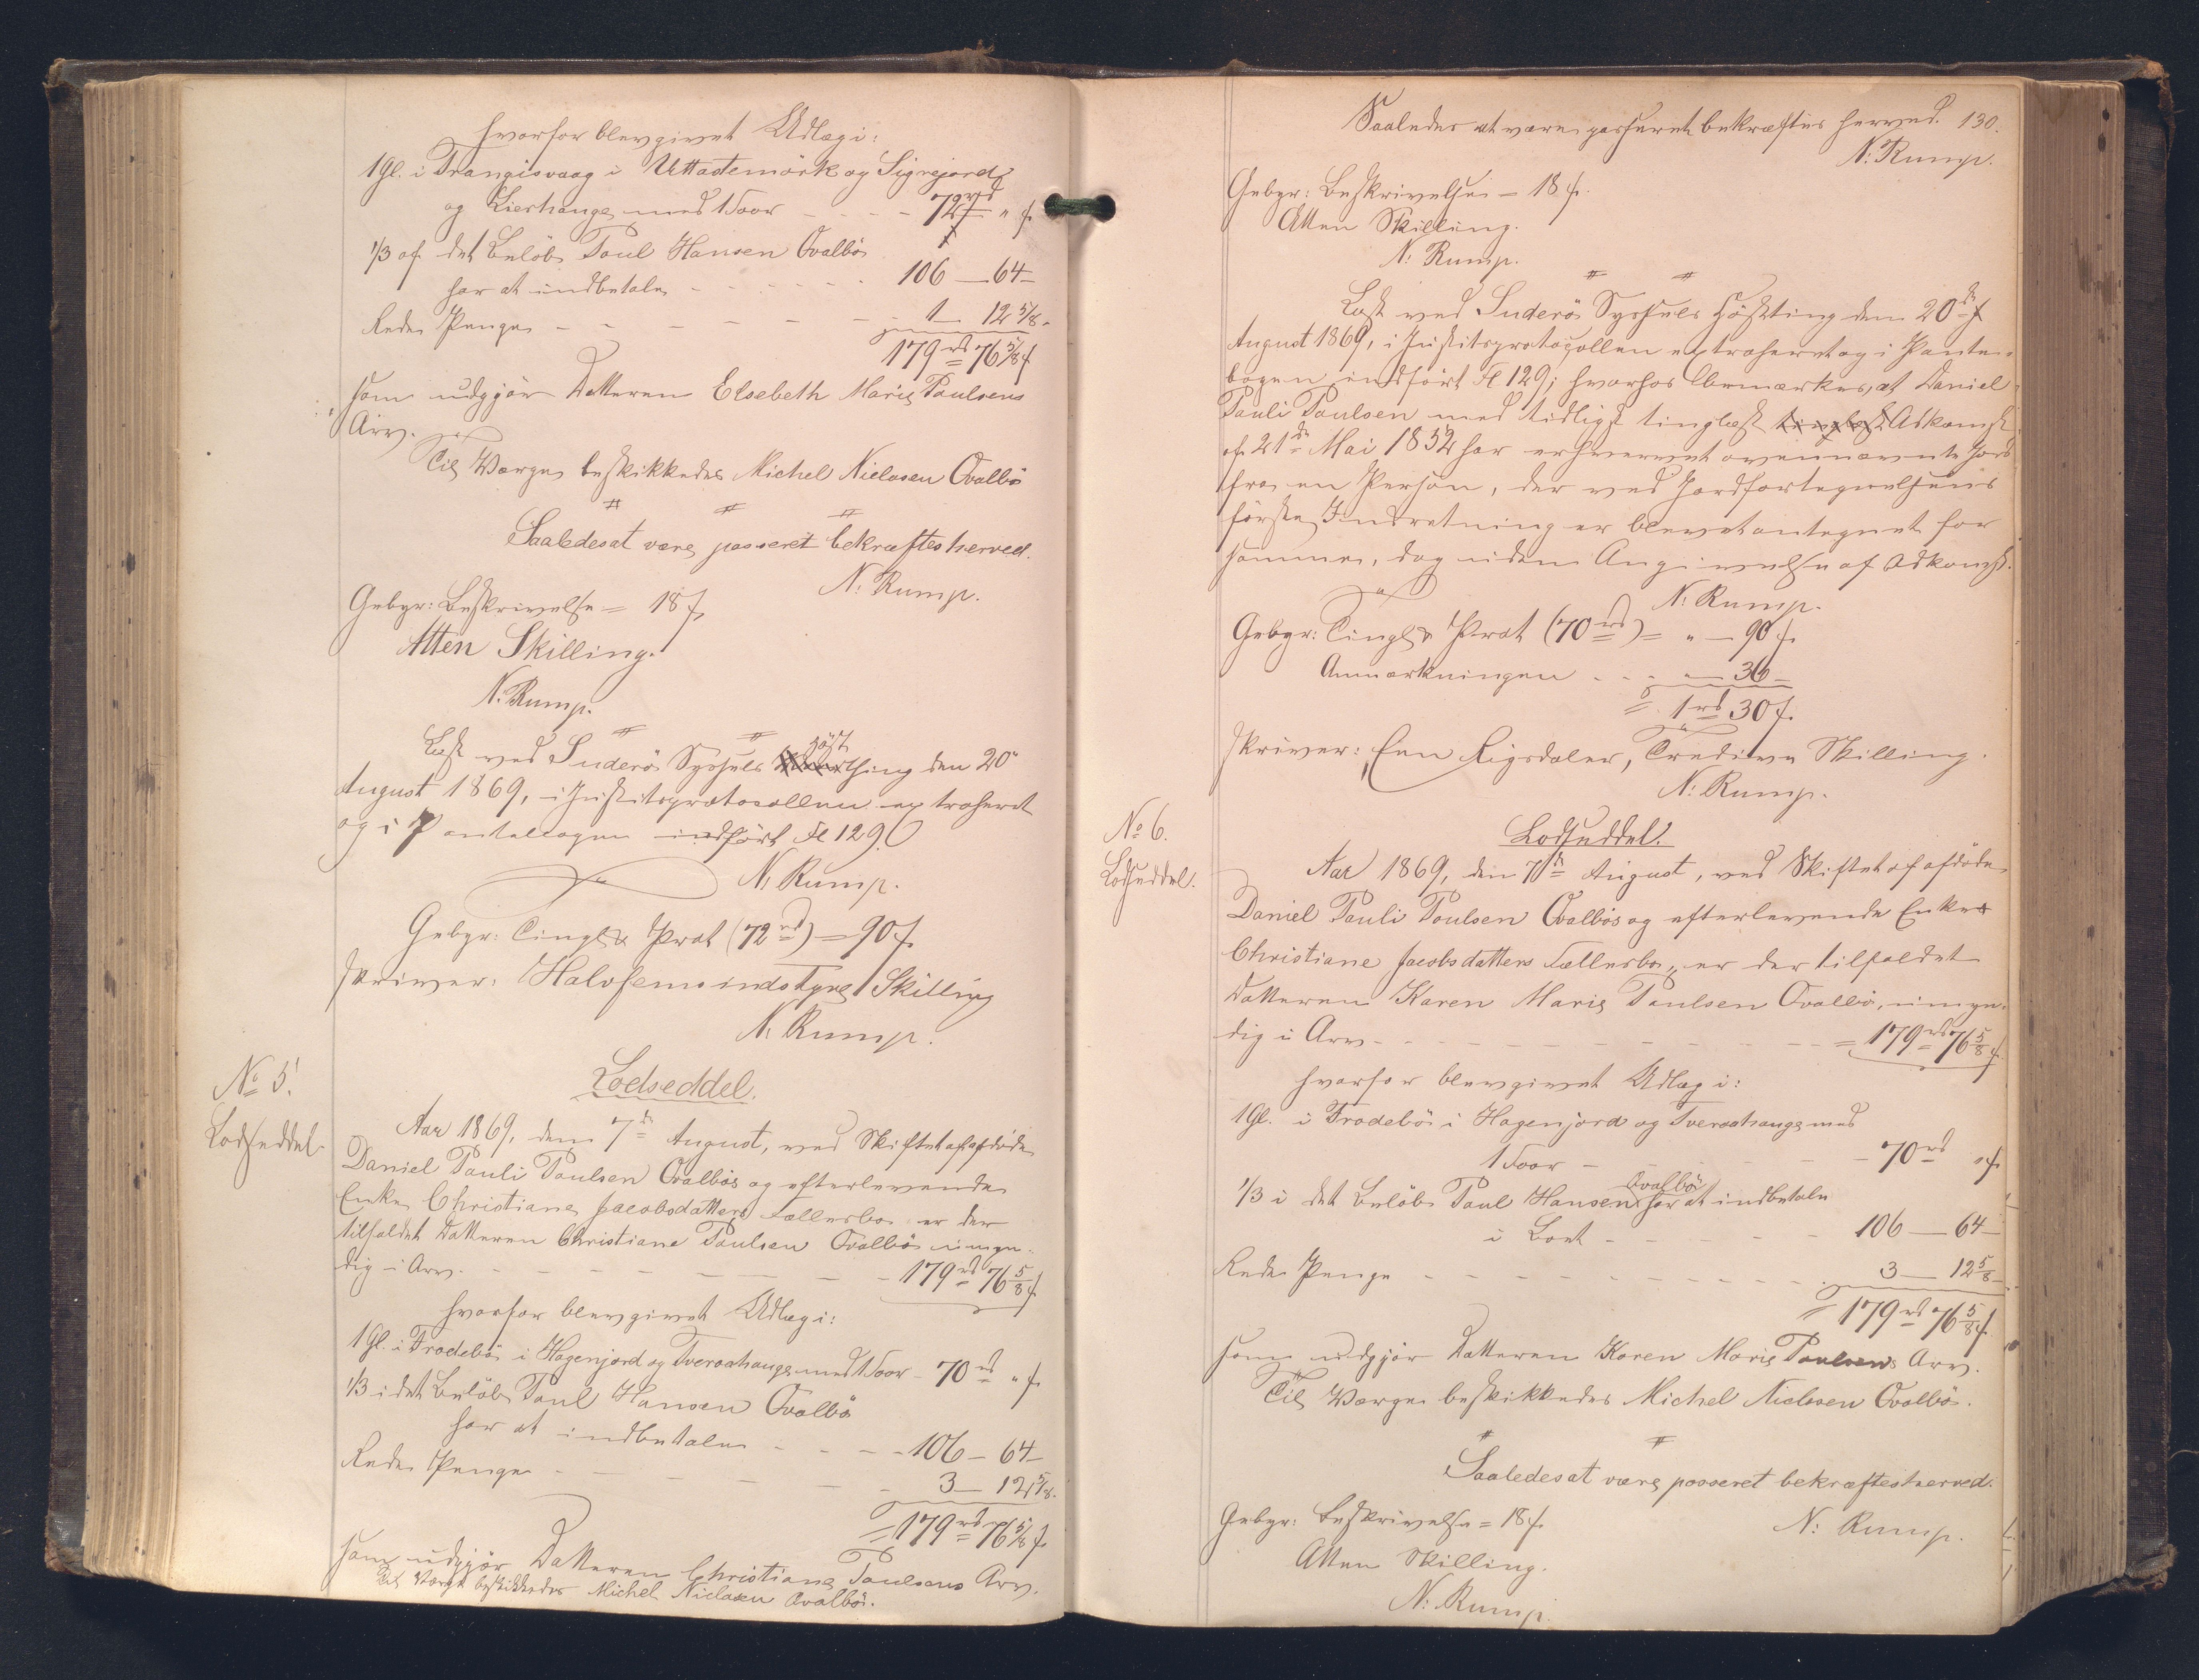 hvorfor blev givet Udlæg i:
1 Gl. i Trangisvaag i Uttastemörk og Signejord
og Lierhauge med 1 Foor - - - - 72 rd " f.
1/3 af det Beløb Poul Hansen Qvalbö
har at indbetale - - - - - - 106 - 64 -
Rede Penge - - - - - - 1 - 12 5/8 -
179 rd 76 5/8 f
som udgjør Datteren Elsebeth Marie Poulsens
Arv.
Til Værge beskikkedes Michel Nielssen Qvalbö
Saaledes at være passeret bekræftes herved.
N: Rump.
Gebyr: Beskrivelse = 18 f
Atten Skilling.
N: Rump.
Læst ved Suderø Syssels Høstthing den 20de
August 1869, i Justitsprotocollen extraheret
og i Pantebogen indført Fl 129.
N: Rump.
Gebyr: Tingl & Prot (72 rd) = 90 f.
skriver: Halvfemsindstyve Skilling
N. Rump.
No 5.
Lodseddel
Lodseddel.
Aar 1869, den 7de August, ved Skiftet af afdøde
Daniel Pauli Poulsen Qvalbös og efterlevende
Enke Christiane Jacobsdatters Fællesbo er der
tilfaldet Datteren Christiane Poulsen Qvalbö umyn-
dig i Arv. - - - - - - - 179 rd 76 5/8 f.
hvorfor blev givet Udlæg i:
1 Gl. i Frodebö i Hagenjord og Tveraahauge med 1 Foor - 70 rd " f.
1/3 i det Beløb Poul Hansen Qvalbö
har at indbetale - - - - 106 - 64 -
Rede Penge - - - - - - 3 - 12 5/8 -
= 179 rd 76 5/8 f.
som udgjør Datteren Christiane Poulsens Arv.
Til Værge beskikkedes Michel Nielssen Qvalbö.
Saaledes at være passeret bekræftes herved. 130.
N: Rump.
Gebyr: Beskrivelse = 18 f.
Atten Skilling.
N: Rump.
Læst ved Suderø Syssels Høstting den 20de
August 1869, i Justitsprotocollen extraheret og i Pante-
bogen indført Fl 129; hvorhos bemærkes, at Daniel
Pauli Poulsen med tidligst tinglæst tinglæst Adkomst
af 21de Mai 1852 har erhvervet ovennævnte Jord
fra en Person, der ved Jordfortegnelsens
første Indretning er blevet antegnet for
samme, dog uden Angivelse af Adkomst.
N: Rump.
Gebyr: Tingl & Prot (70 rd) = " - 90 f.
Anmærkningen - - " - 36 -
= 1 rd 30 f.
skriver: Een Rigsdaler, Tredive Skilling.
N: Rump.
No 6.
Lodseddel.
Lodseddel.
Aar 1869, den 7de August, ved Skiftet af afdøde
Daniel Pauli Poulsen Qvalbös og efterlevende Enke
Christiane Jacobsdatters Fællesbo, er der tilfaldet
Datteren Karen Marie Poulsen Qvalbö, umyn-
dig i Arv - - - - - - - = 179 rd 76 5/8 f.
hvorfor blev givet Udlæg i:
1 Gl. i Frodebö i Hagenjord og Tveraahauge med
1 Foor - - - - 70 rd " f.
1/3 i det Beløb Poul Hansen Qvalbö har at indbetale
i Boet - - - - - 106 - 64 -
Rede Penge - - - - - - - - 3 - 12 5/8 -
= 179 rd 76 5/8 f.
som udgjør Datteren Karen Marie Poulsens Arv.
Til Værge beskikkedes Michel Nielssen Qvalbö.
Saaledes at være passeret bekræftes herved.
Gebyr: Beskrivelse = 18 f.
N: Rump.
Atten Skilling.
N. Rump.